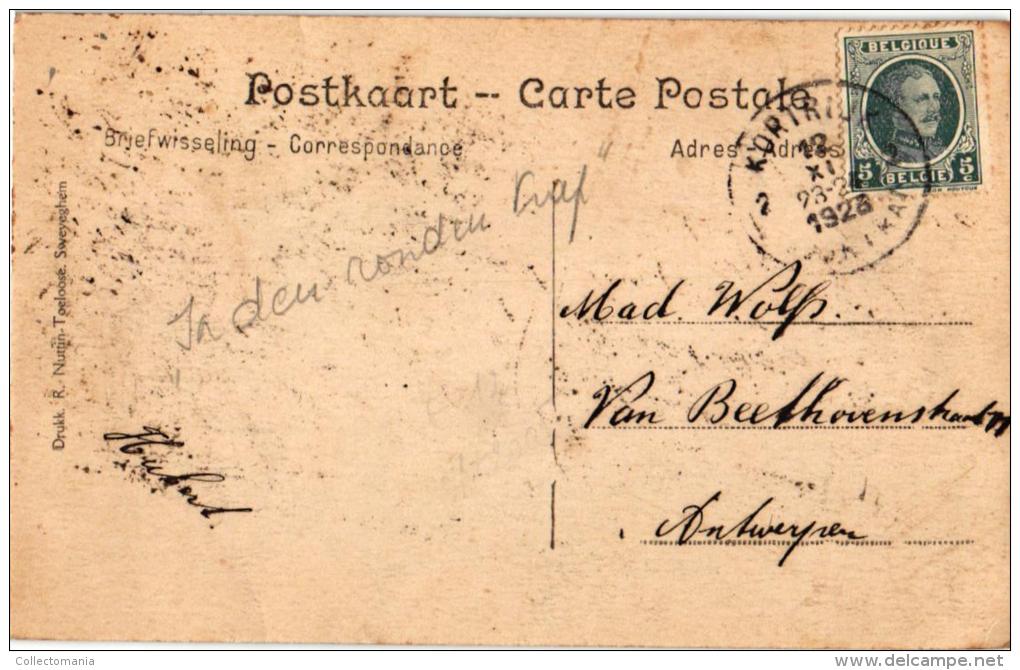 Postkaart -- Carte Postale
Briefwisseling - Correspondance
Adres - Adresse
BELGIQUE
5c 5c
BELGIË
KORTRIJK
12
XI
1923
2
Drukk. R. Nuttin-Toeloose. Sweveghem
"In den ronden
Hubert.
Mad. Wolfs.
Van Beethovenstraat
Antwerpen
Collectomania
www.delcampe.net